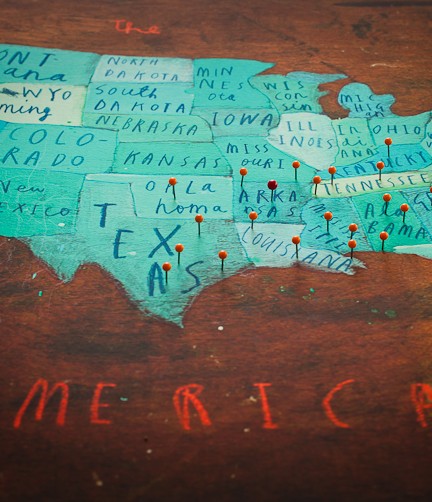 The
ONT-
ana
NORTH
DAKOTA
MIN
NES
ota
WIS
con
sin
MIC
HIG
an
WYO
ming
South
DAKOTA
NEBRASKA
IOWA
ILL
INOIS
In
di
ANAS
OHIO
COLO-
RADO
KANSAS
MISS
OURI
KENTUCKY
TENNESSEE
New
EXICO
OKLA
homa
ARKA
AS
Ala
BAMA
TEX
AS
LOUISIANA
MERICA